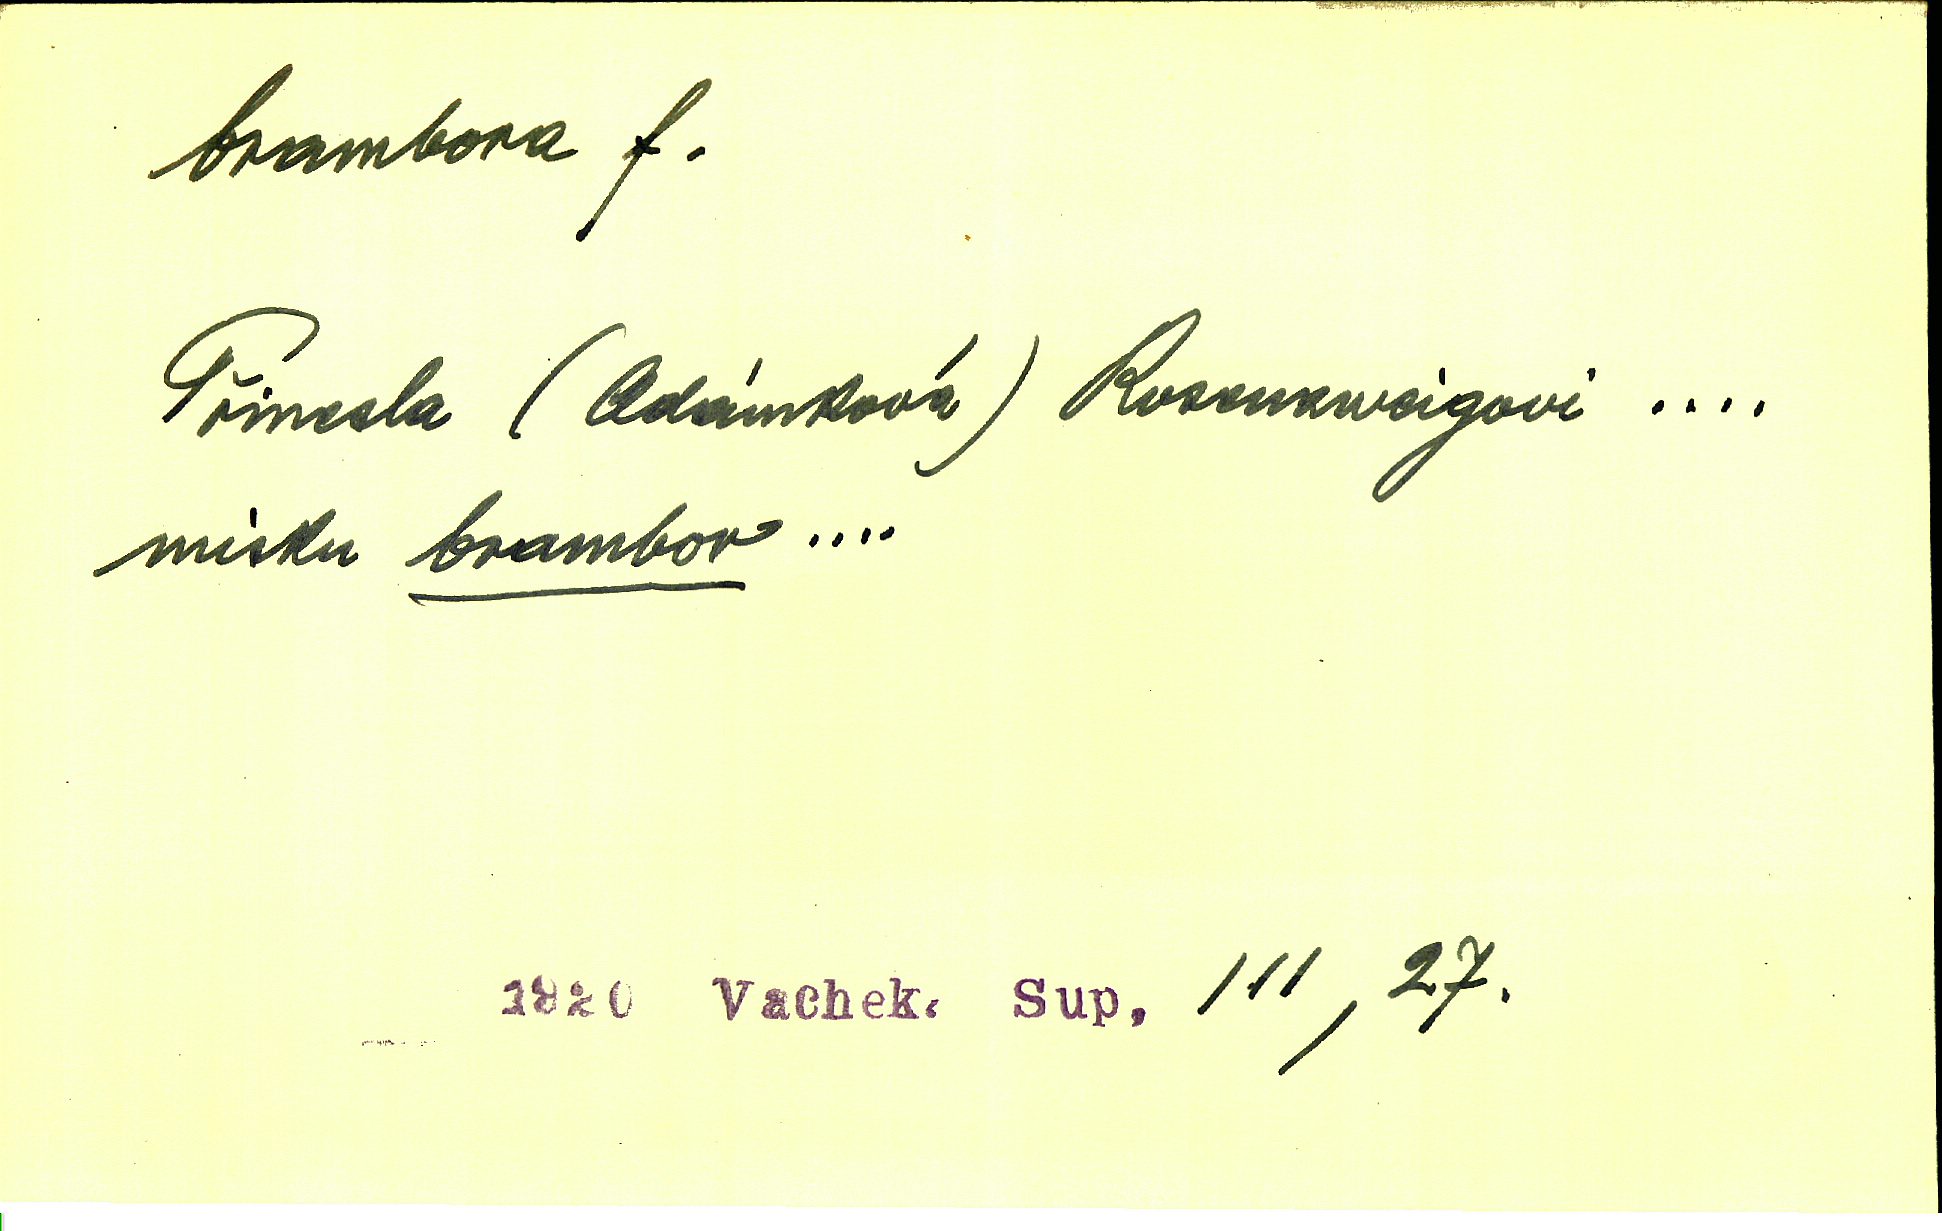 brambora f.
Přinesla (Adámková) Rosenzweigovi ....
misku brambor ....
1920 Vachek. Sup, 111, 27.